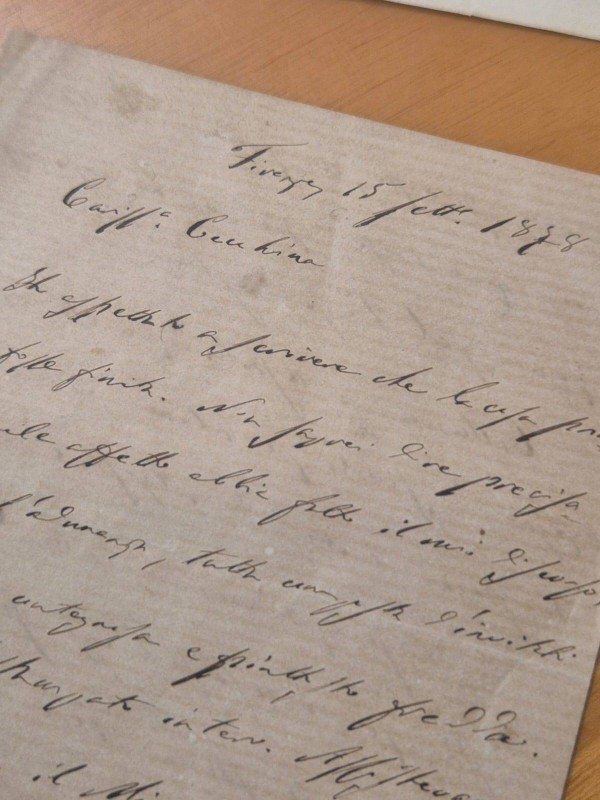 Firenze 15 Sett. 1878
Cariss.a Cecchina
Ho aspettato a scrivere che la cosa
fosse finita. Non saprei dire precisa-
effetto abbia fatto il mio discorso,
l'adunanza, tutta composta d'invitati
contegnosa e piuttosto fredda.
Assisteva
il